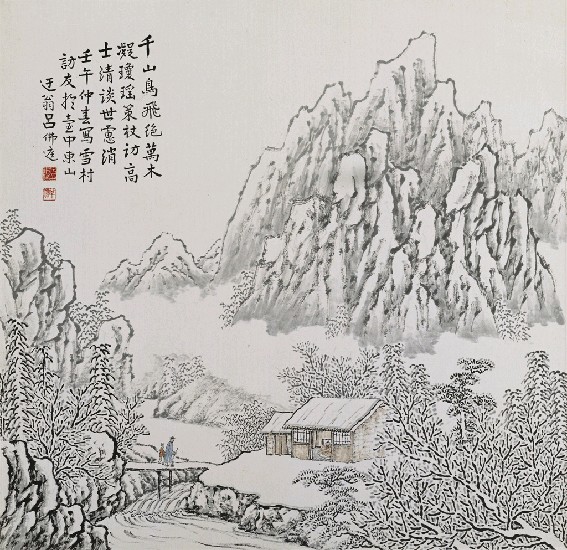 千山鳥飛絶萬木
凝瓊瑤策杖访高
士清談世慮消
壬午仲春寫雪村
訪友扵臺中東山
迂翁呂佛庭